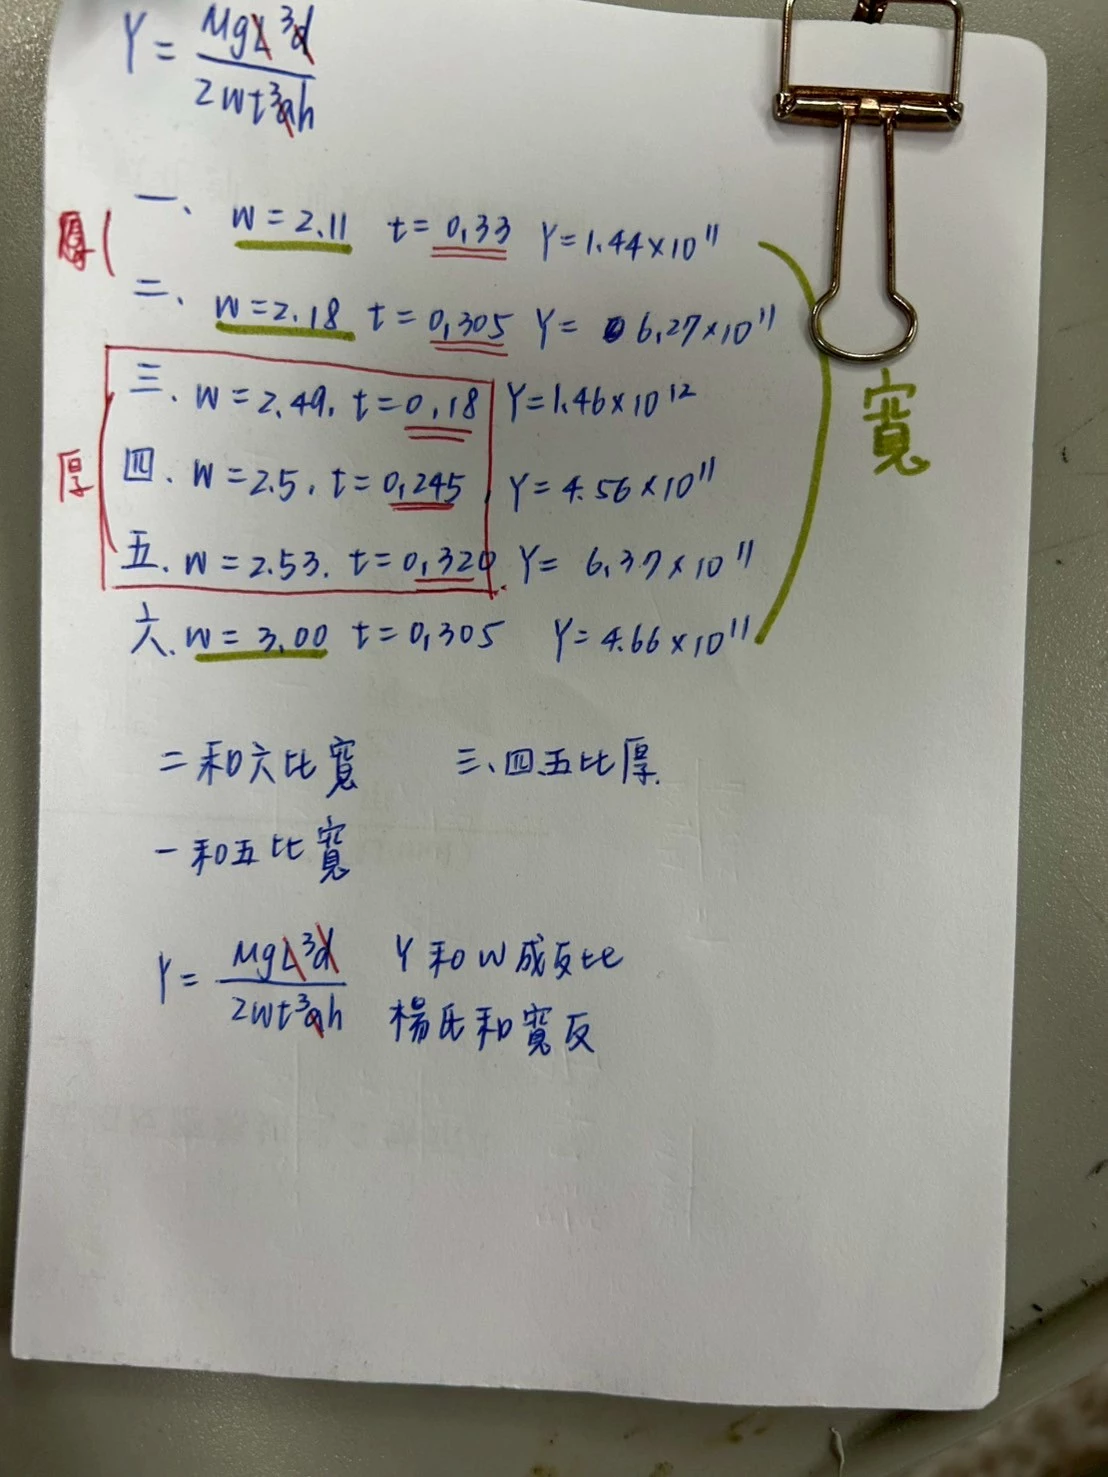 Y = MgL³d / 2wt³ah
一、 w = 2.11 t = 0.33 Y = 1.44×10¹¹
厚
二、 w = 2.18 t = 0.305 Y = 6.27×10¹¹
三、 w = 2.49, t = 0.18 Y = 1.46×10¹²
寬
四、 w = 2.5, t = 0.245 Y = 4.56×10¹¹
厚
五、 w = 2.53, t = 0.320 Y = 6.37×10¹¹
六、 w = 3.00 t = 0.305 Y = 4.66×10¹¹
二和六比寬 三、四五比厚.
一和五比寬
Y = MgL³d / 2wt³ah Y和W成反比
楊氏和寬反